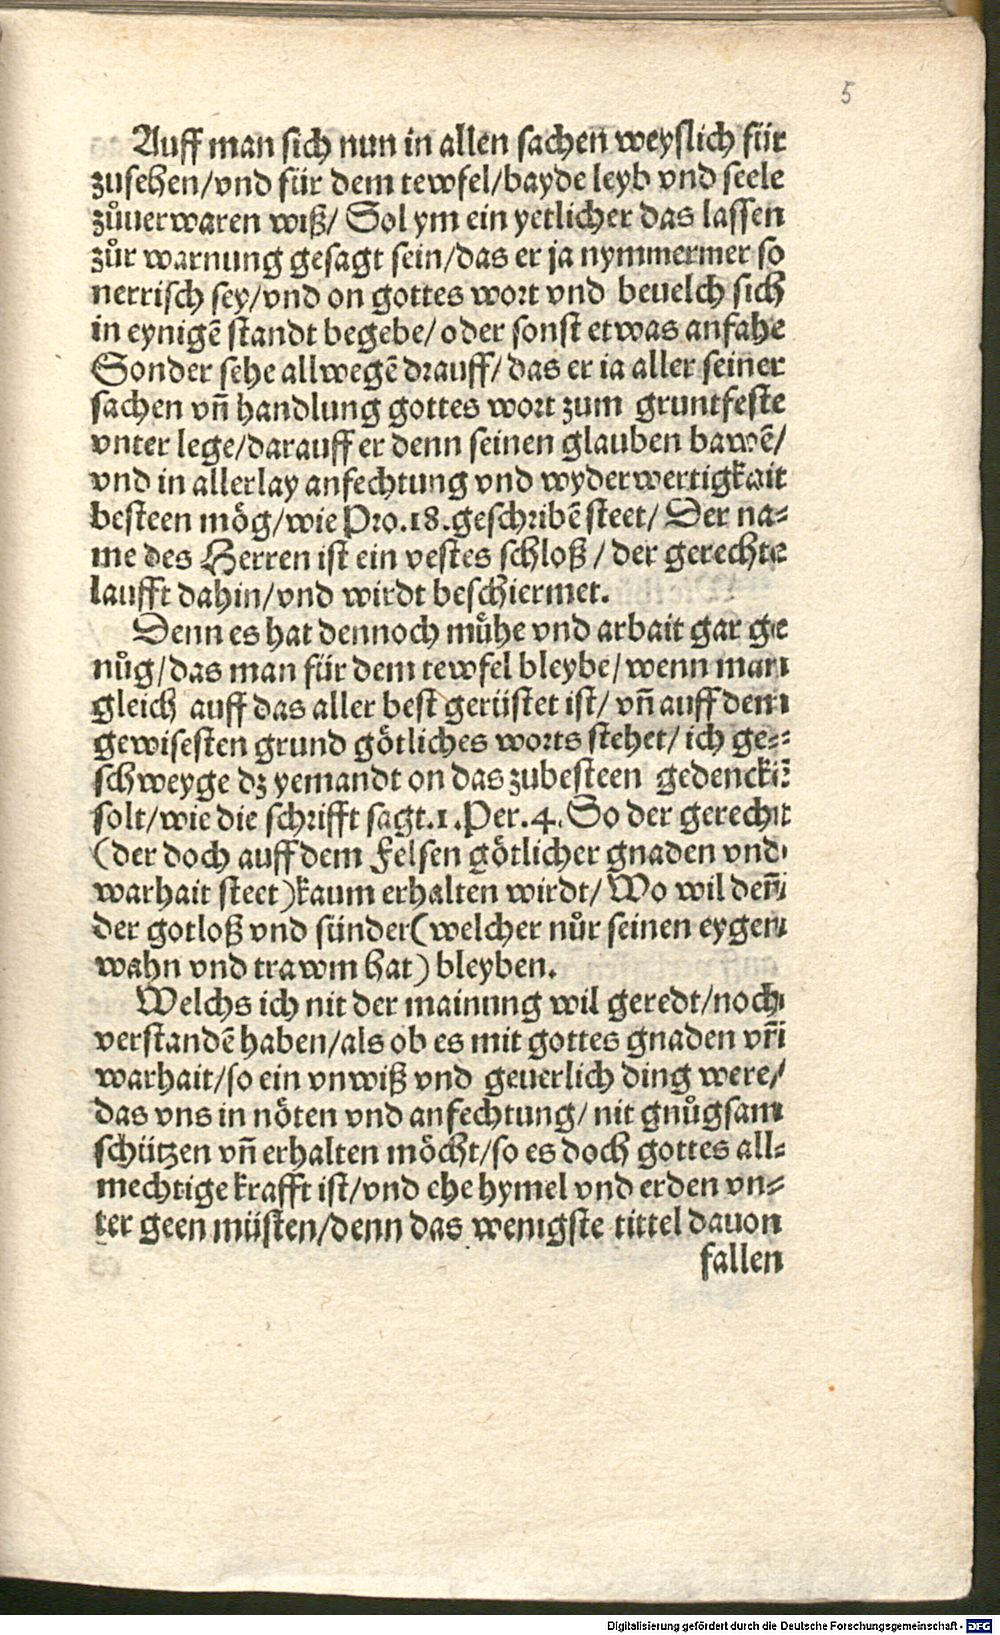 5
Auff man sich nun in allen sachen weyslich für
zusehen/vnd für dem tewfel/bayde leyb vnd seele
zůuerwaren wiß/ Sol ym ein yetlicher das lassen
zůr warnung gesagt sein/das er ja nymmermer so
nerrisch sey/vnd on gottes wort vnd beuelch sich
in eynigē standt begebe/oder sonst etwas anfahe
Sonder sehe allwegē drauff/das er ia aller seiner
sachen vñ handlung gottes wort zum gruntfeste
vnter lege/darauff er denn seinen glauben bawē/
vnd in allerlay anfechtung vnd wyderwertigkait
besteen mög/wie Pro.18.geschribē steet/ Der na-
me des Herren ist ein vestes schloß/der gerechte
laufft dahin/vnd wirdt beschiermet.
Denn es hat dennoch můhe vnd arbait gar ge
nůg/das man für dem tewfel bleybe/wenn man
gleich auff das aller best gerüstet ist/vñ auff dem
gewisesten grund götliches worts stehet/ich ge-
schweyge dz yemandt on das zubesteen gedenckē
solt/wie die schrifft sagt.1.Per.4. So der gerecht
(der doch auff dem Felsen götlicher gnaden vnd
warhait steet)kaum erhalten wirdt/Wo wil deñ
der gotloß vnd sünder(welcher nůr seinen eygen
wahn vnd trawm hat) bleyben.
Welchs ich nit der mainung wil geredt/noch
verstandē haben/als ob es mit gottes gnaden vñ
warhait/so ein vnwiß vnd geuerlich ding were/
das vns in nöten vnd anfechtung/nit gnůgsam
schützen vñ erhalten möcht/so es doch gottes all-
mechtige krafft ist/vnd ehe hymel vnd erden vn-
ter geen müsten/denn das wenigste tittel dauon
fallen
Digitalisierung gefördert durch die Deutsche Forschungsgemeinschaft - DFG